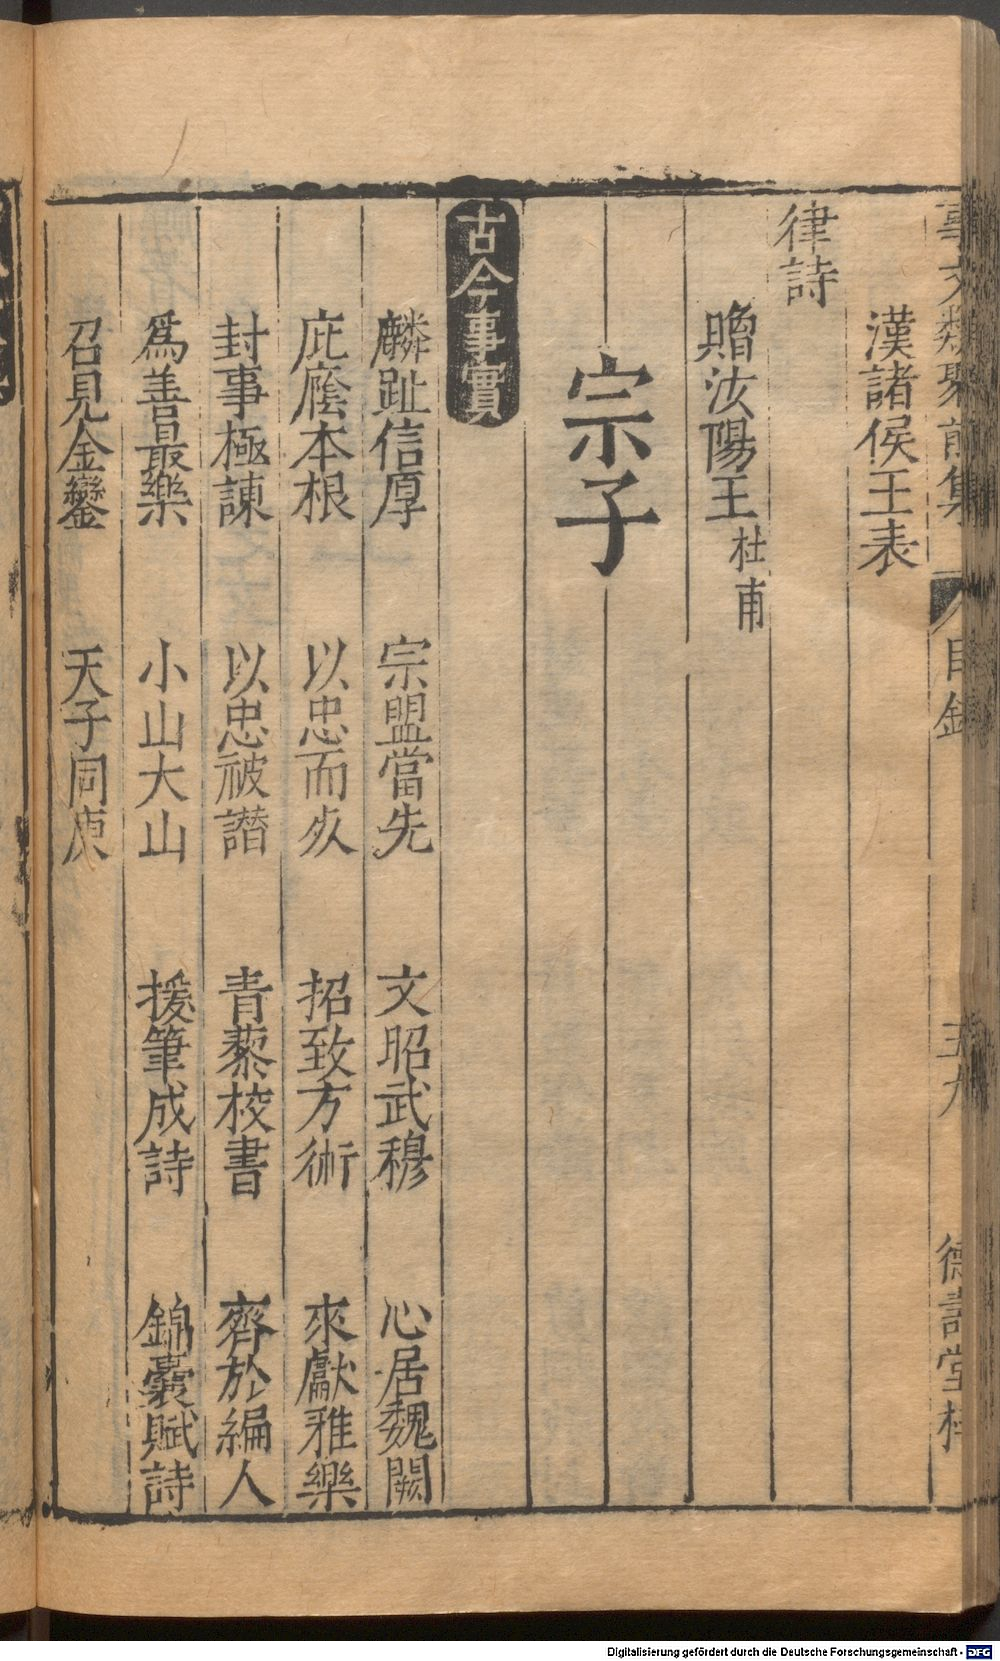 事文類聚前集 目錄 五九 德壽堂梓
漢諸侯王表
律詩
贈汝陽王 杜甫
宗子
古今事實
麟趾信厚 宗盟當先 文昭武穆 心居魏闕
庇廕本根 以忠而疚 招致方術 來獻雅樂
封事極諫 以忠被譖 青藜校書 齊於編人
爲善最樂 小山大山 援筆成詩 錦囊賦詩
召見金鑾 天子同庚
Digitalisierung gefördert durch die Deutsche Forschungsgemeinschaft - DFG